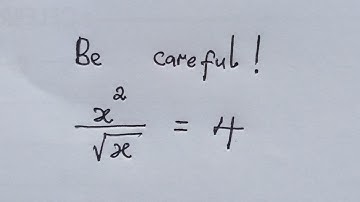 Be careful!
x²/√x = 4